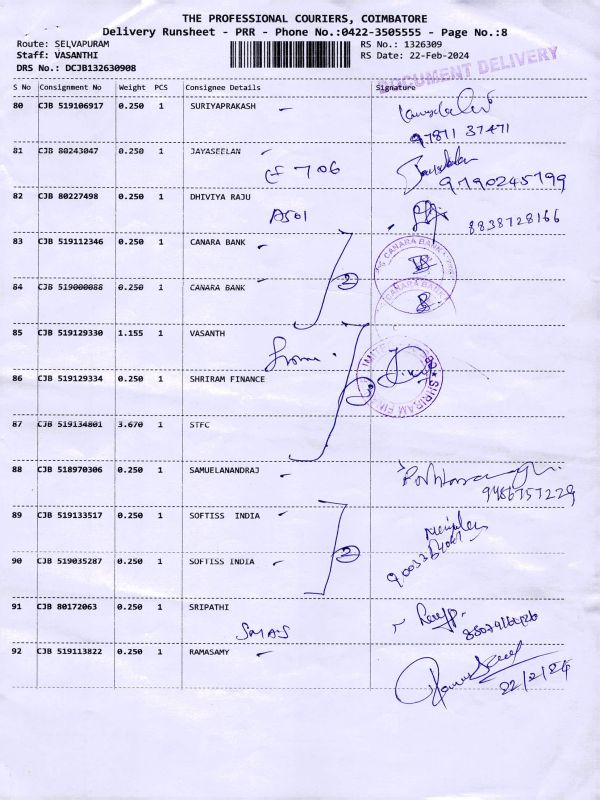 THE PROFESSIONAL COURIERS, COIMBATORE
Delivery Runsheet - PRR - Phone No.:0422-3505555 - Page No.:8
Route: SELVAPURAM
RS No.: 1326309
Staff: VASANTHI
RS Date: 22-Feb-2024
DRS No.: DCJB132630908
DOCUMENT DELIVERY
S No Consignment No Weight PCS Consignee Details Signature
80 CJB 519106917 0.250 1 SURIYAPRAKASH
97871 37471
81 CJB 80243047 0.250 1 JAYASEELAN
GF 706
9790245799
82 CJB 80227498 0.250 1 DHIVIYA RAJU
A501
8838728166
83 CJB 519112346 0.250 1 CANARA BANK
CANARA BANK
84 CJB 519000088 0.250 1 CANARA BANK
2
CANARA BANK
85 CJB 519129330 1.155 1 VASANTH
86 CJB 519129334 0.250 1 SHRIRAM FINANCE
SHRIRAM
87 CJB 519134801 3.670 1 STFC
88 CJB 518970306 0.250 1 SAMUELANANDRAJ
9486757229
89 CJB 519133517 0.250 1 SOFTISS INDIA
90 CJB 519035287 0.250 1 SOFTISS INDIA
2
91 CJB 80172063 0.250 1 SRIPATHI
92 CJB 519113822 0.250 1 RAMASAMY
22/2/24